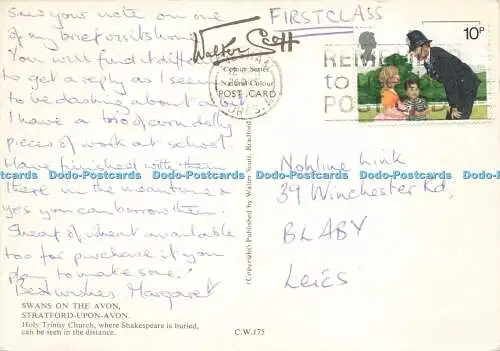 Saw your note on one
of my brief visits home.
You will find it diff
to get a reply as I seem
to be dashing about a lot
I have a lot of corn dolly
pieces of work at school.
Have finished with them
there in the meantime &
yes you can borrow them.
Sheaf of wheat available
too for purchase if you
plan to make some!
Best wishes, Margaret
SWANS ON THE AVON,
STRATFORD-UPON-AVON.
Holy Trinity Church, where Shakespeare is buried,
can be seen in the distance.
C.W.175
FIRST CLASS
Walter Scott
Colour Series
Natural Colour
POST CARD
(Copyright) Published by Walter Scott, Bradford
10P
REMEMBER
to
POST
link
39 Winchester Rd,
BLABY
Leics
Dodo-Postcards Dodo-Postcards Dodo-Postcards Dodo-Postcards Dodo-Postcards